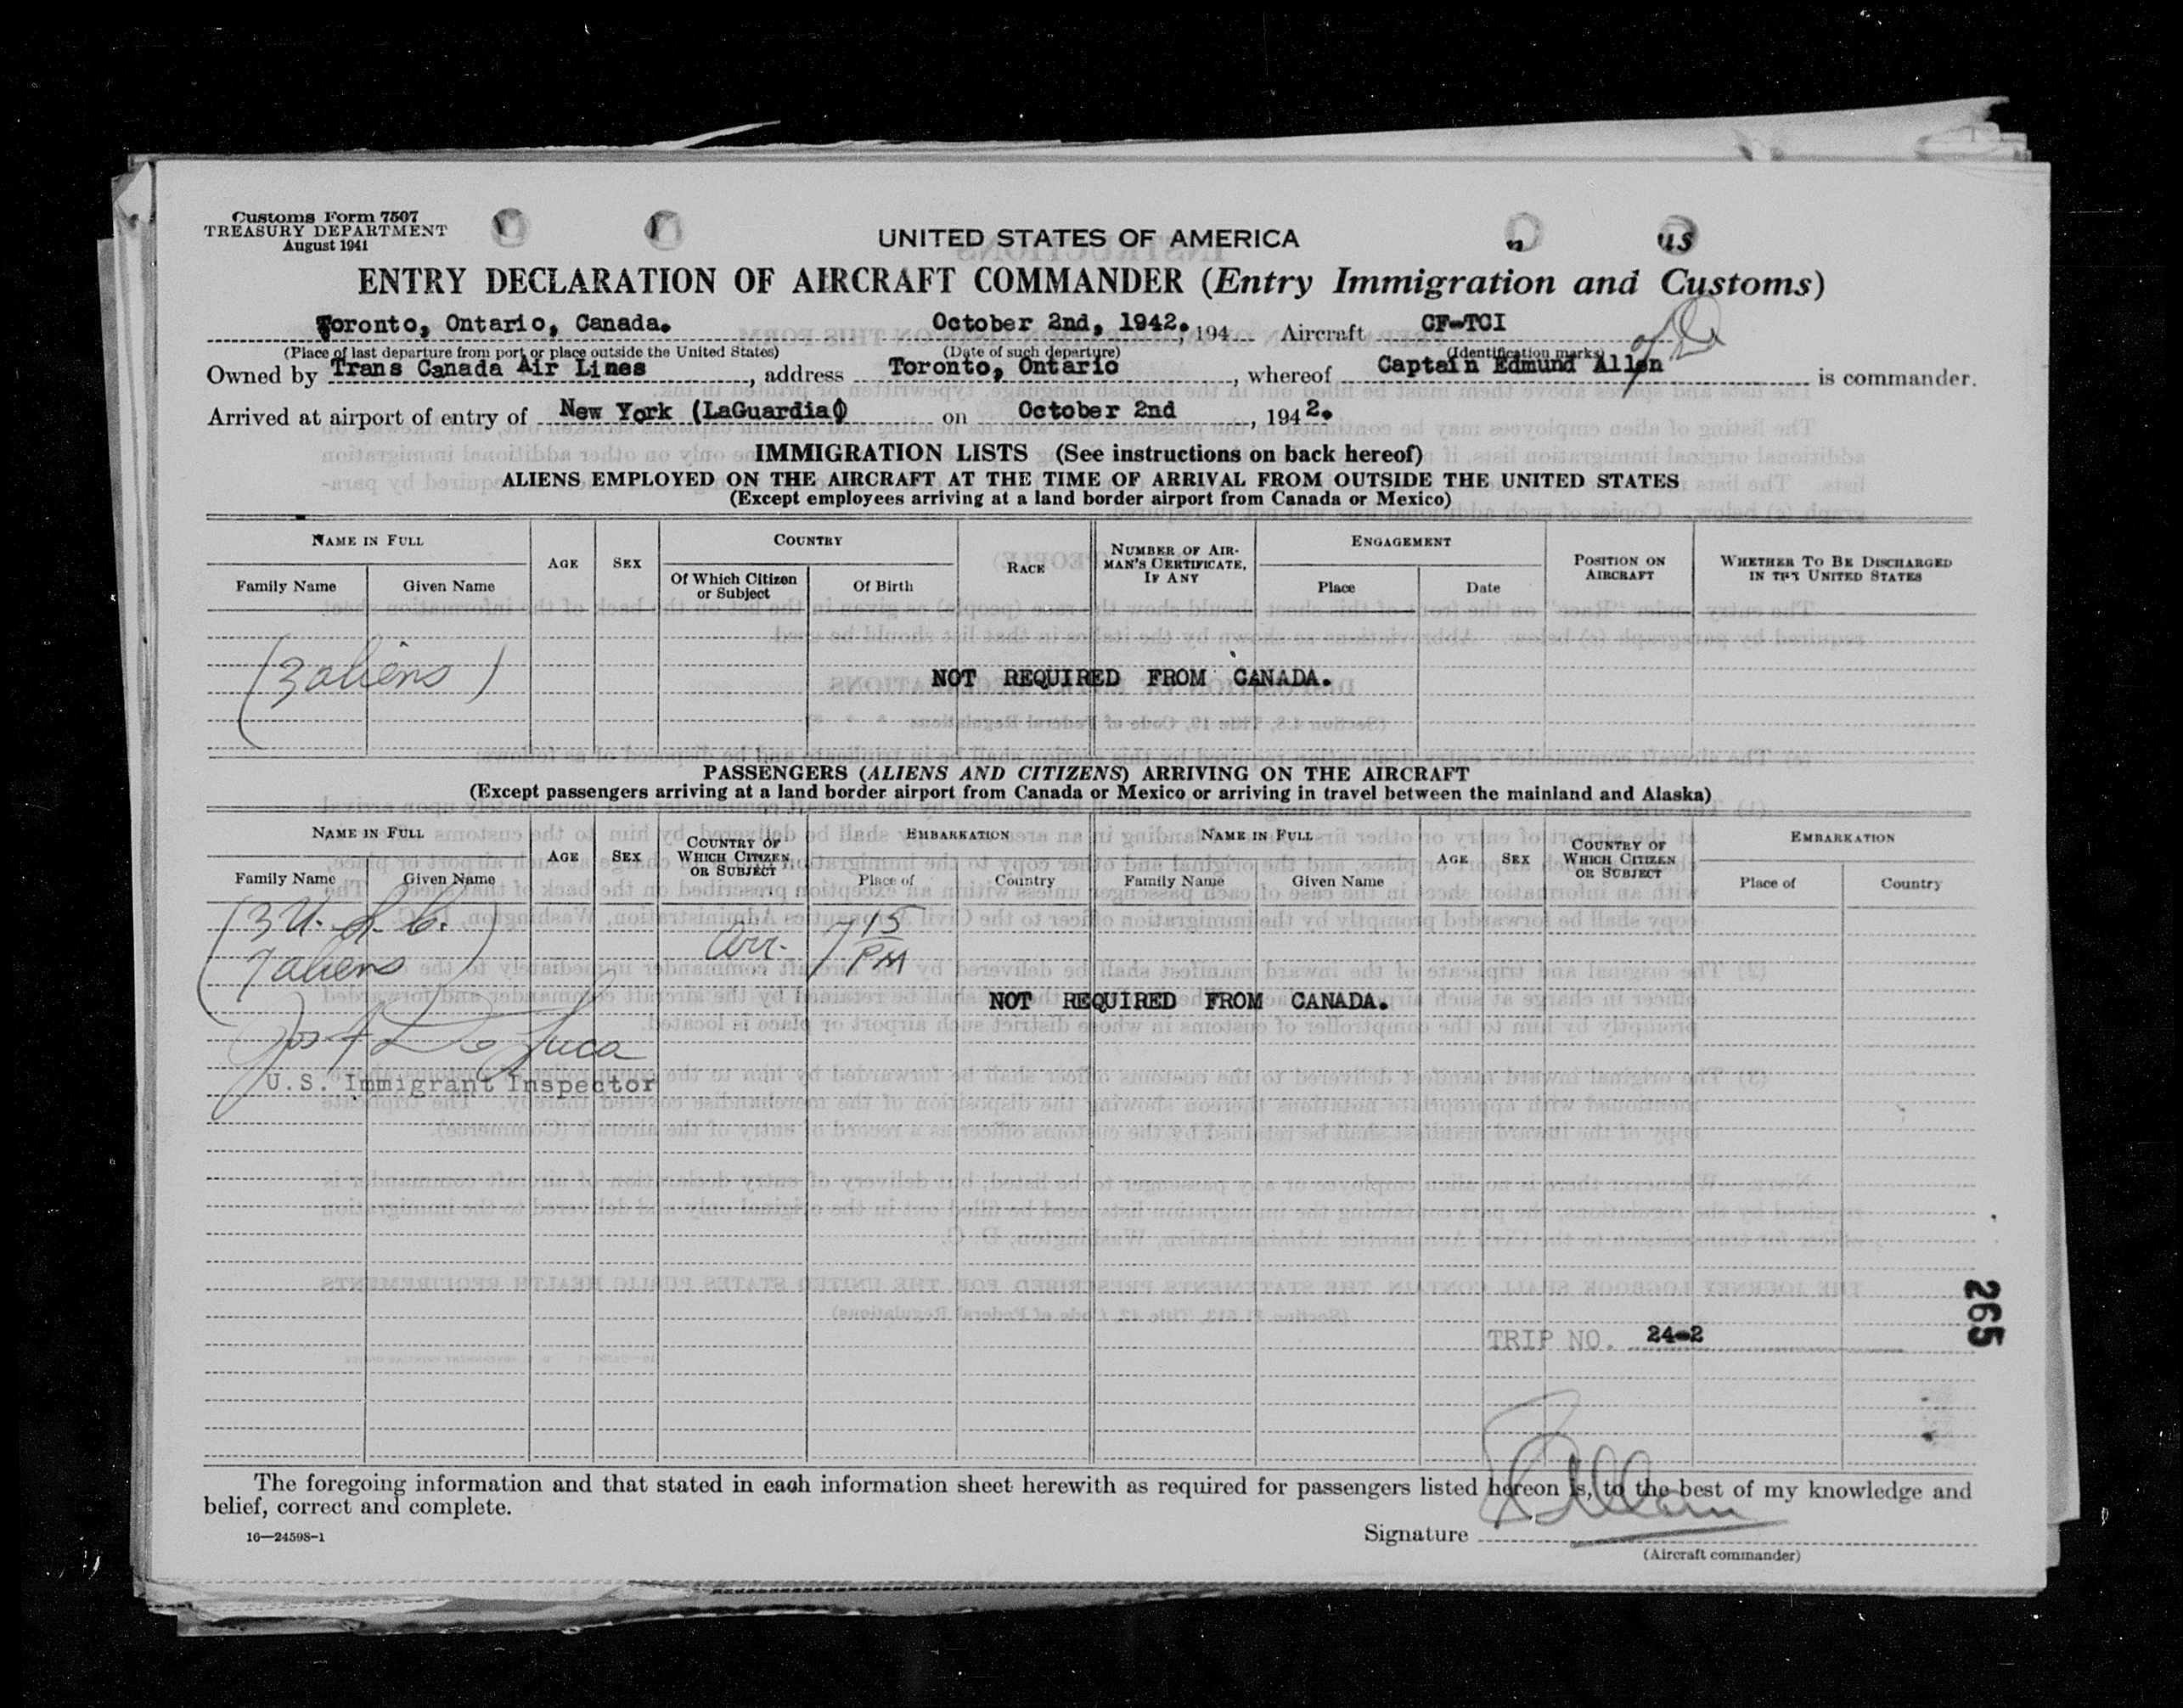 Customs Form 7507
TREASURY DEPARTMENT
August 1941
UNITED STATES OF AMERICA
us
ENTRY DECLARATION OF AIRCRAFT COMMANDER (Entry Immigration and Customs)
Toronto, Ontario, Canada. October 2nd, 1942. , 194 Aircraft CF-TCI
(Place of last departure from port or place outside the United States) (Date of such departure) (Identification marks)
Owned by Trans Canada Air Lines , address Toronto, Ontario , whereof Captain Edmund Allen is commander.
Arrived at airport of entry of New York (LaGuardia) on October 2nd , 1942.
IMMIGRATION LISTS (See instructions on back hereof)
ALIENS EMPLOYED ON THE AIRCRAFT AT THE TIME OF ARRIVAL FROM OUTSIDE THE UNITED STATES
(Except employees arriving at a land border airport from Canada or Mexico)
NAME IN FULL AGE SEX COUNTRY RACE NUMBER OF AIRMAN'S CERTIFICATE, IF ANY ENGAGEMENT POSITION ON AIRCRAFT WHETHER TO BE DISCHARGED IN THE UNITED STATES
Family Name Given Name Of Which Citizen or Subject Of Birth Place Date
(3 aliens)
NOT REQUIRED FROM CANADA.
PASSENGERS (ALIENS AND CITIZENS) ARRIVING ON THE AIRCRAFT
(Except passengers arriving at a land border airport from Canada or Mexico or arriving in travel between the mainland and Alaska)
NAME IN FULL AGE SEX COUNTRY OF WHICH CITIZEN OR SUBJECT EMBARKATION NAME IN FULL AGE SEX COUNTRY OF WHICH CITIZEN OR SUBJECT EMBARKATION
Family Name Given Name Place of Country Family Name Given Name Place of Country
(3 U.S.C.
7 aliens)
Arr. 7 15 PM
NOT REQUIRED FROM CANADA.
Jos F De Luca
U.S. Immigrant Inspector
TRIP NO. 24-2
265
The foregoing information and that stated in each information sheet herewith as required for passengers listed hereon is, to the best of my knowledge and
belief, correct and complete.
16—24598-1
Signature
(Aircraft commander)